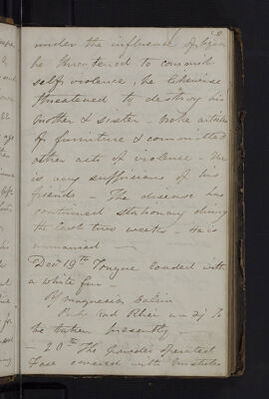 under the influence of liquor
he threatened to commit
self violence, he likewise
threatened to destroy his
mother & sister - broke articles
of furniture & committed
other acts of violence - He
is very suspicious of his
friends - The disease has
continued stationary during
the last two weeks - He is
unmarried -
Decr 19th Tongue loaded with
a white fur -
Magnesia Calcin
Pulv Rad Rhei aa ʒj To
be taken presently -
- 20th The powder operated
Face covered with